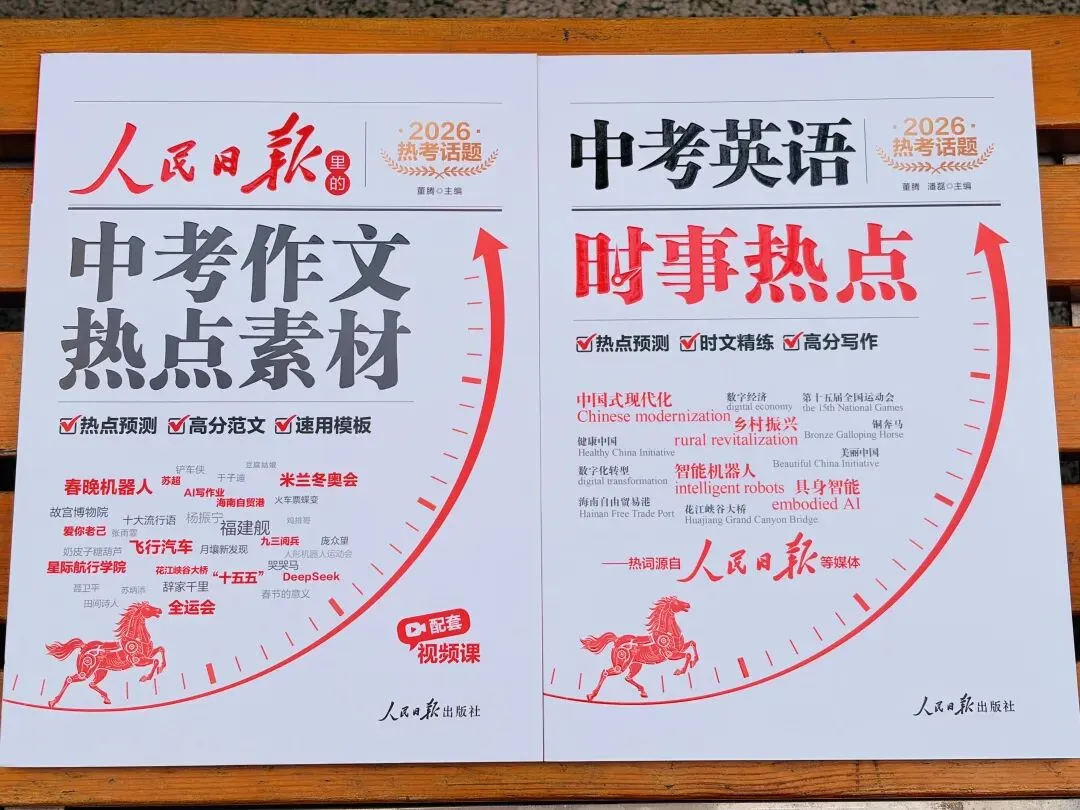 人民日报里的
·2026·
热考话题
董腾◎主编
中考作文
热点素材
热点预测 高分范文 速用模板
豆腐姑娘
铲车侠 于子迪
春晚机器人 苏超 米兰冬奥会
AI写作业
海南自贸港 火车票蝶变
故宫博物院 十大流行语 杨振宁 福建舰 鸡排哥
爱你老己 张雨霏 九三阅兵 庞众望
奶皮子糖葫芦 飞行汽车 月壤新发现 人形机器人运动会
星际航行学院 花江峡谷大桥 “十五五” 哭哭马 DeepSeek
聂卫平 苏炳添 辞家千里 春节的意义
田间诗人 全运会
配套
视频课
人民日报出版社
中考英语
·2026·
热考话题
董腾 潘磊◎主编
时事热点
热点预测 时文精练 高分写作
中国式现代化 数字经济 第十五届全国运动会
Chinese modernization digital economy the 15th National Games
乡村振兴 铜奔马
健康中国 rural revitalization Bronze Galloping Horse
Healthy China Initiative 美丽中国
数字化转型 智能机器人 Beautiful China Initiative
digital transformation intelligent robots 具身智能
海南自由贸易港 花江峡谷大桥 embodied AI
Hainan Free Trade Port Huajiang Grand Canyon Bridge
——热词源自人民日报等媒体
人民日报出版社